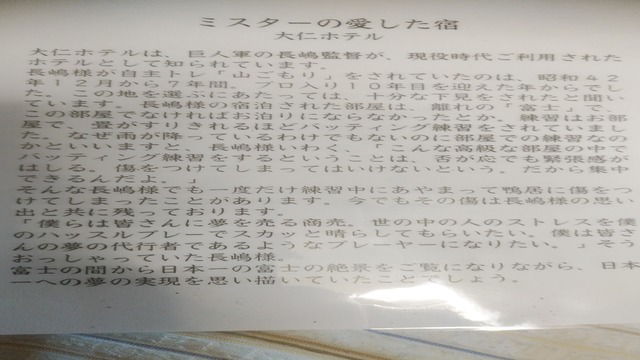 ミスターの愛した宿
大仁ホテル
大仁ホテルは、巨人軍の長嶋監督が、現役時代ご利用された
ホテルとして知られています。
長嶋様が自主トレ「山ごもり」をされていたのは、昭和４２
年１２月から７年間。プロ入り１０年目を迎えた年からでし
た。この地を選ぶにあたっては、十分な下見をされたと聞い
ています。長嶋様の宿泊された部屋は、離れの「富士」で、
この部屋でなければお泊りにならなかったとか。練習はお部
屋で、畳がすりきれるほどバッティング練習をされていまし
た。なぜ雨が降っているわけでもないのに部屋での練習なの
かといいますと、長嶋様いわく、「こんな高級な部屋の中で
バッティング練習をするということは、否が応でも緊張感が
はしる。傷をつけてしまってはいけないという。だから集中
できるんだよ。」
そんな長嶋様でも一度だけ練習中にあやまって鴨居に傷をつ
けてしまったことがあります。今でもその傷は長嶋様の思い
出と共に残っております。
「僕らは皆さんに夢を売る商売。世の中の人のストレスを僕
のハッスルプレーでスカッと晴らしてもらいたい。僕は皆さ
んの夢の代行者であるようなプレーヤーになりたい。」そう
おっしゃっていた長嶋様。
富士の間から日本一の富士の絶景をご覧になりながら、日本
一への夢の実現を思い描いていたことでしょう。